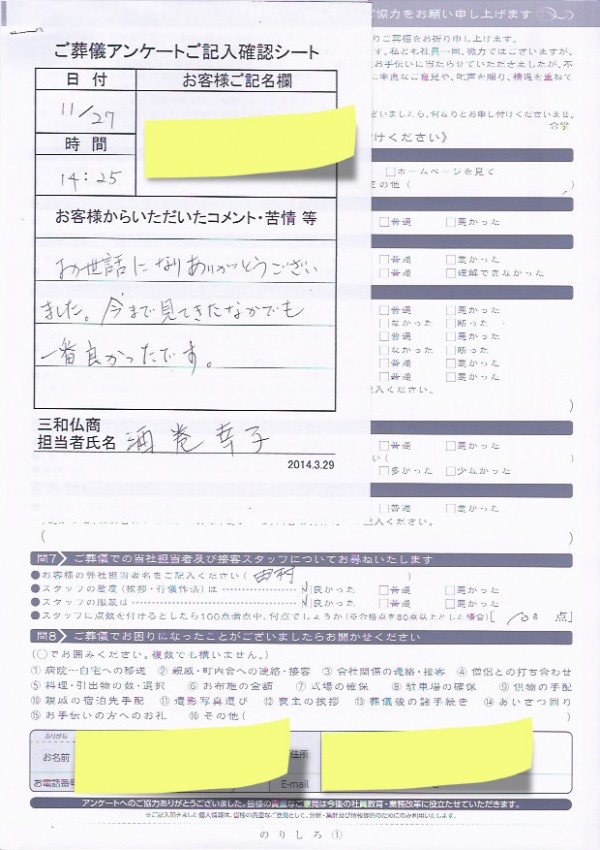 ご協力をお願い申し上げます
ご葬儀アンケートご記入確認シート
日付
お客様ご記名欄
11/27
時間
14:25
お客様からいただいたコメント・苦情 等
お世話になりありがとうござい
ました。今まで見てきたなかでも
一番良かったです。
三和仏商
担当者氏名 酒巻幸子
2014.3.29
りご冥福をお祈り申し上げます。
す。私ども社員一同、微力ではございますが、
お手伝いに当たらせていただきましたが、不
合掌
けください》
□ホームページを見て
その他(
)
□普通 □悪かった
□普通 □悪かった
□普通 □理解できなかった
□普通 □悪かった
□なかった □断った
□普通 □悪かった
□なかった □断った
□普通 □悪かった
□普通 □悪かった
記入ください。
)
□普通 □悪かった
い(
□多かった □少なかった
□普通 □悪かった
記入ください。
( )
問7 ご葬儀での当社担当者及び接客スタッフについてお尋ねいたします
●お客様の弊社担当者名をご記入ください( 田村 )
●スタッフの態度(挨拶・行儀作法)は ☑良かった □普通 □悪かった
●スタッフの服装は ☑良かった □普通 □悪かった
●スタッフに点数を付けるとしたら100点満点中、何点でしょうか(※合格点を80点以上とした場合)[ 100 点]
問8 ご葬儀でお困りになったことがございましたらお聞かせください
(○でお囲みください。複数でも構いません。)
①病院─自宅への移送 ②親戚・町内会への連絡・接客 ③会社関係の連絡・接客 ④僧侶との打ち合わせ
⑤料理・引出物の数・選択 ⑥お布施の金額 ⑦式場の確保 ⑧駐車場の確保 ⑨供物の手配
⑩親戚の宿泊先手配 ⑪遺影写真選び ⑫喪主の挨拶 ⑬葬儀後の諸手続き ⑭あいさつ回り
⑮お手伝いの方へのお礼 ⑯その他( )
ふりがな
お名前
住所
お電話番号
E-mail
アンケートへのご協力ありがとうございました。皆様の貴重なご意見は今後の社員教育・業務改革に役立たせていただきます。
※ご記入頂きました個人情報は、皆様の貴重なご意見として、分析・集計及び情報提供のためにのみ利用いたします。
のりしろ①